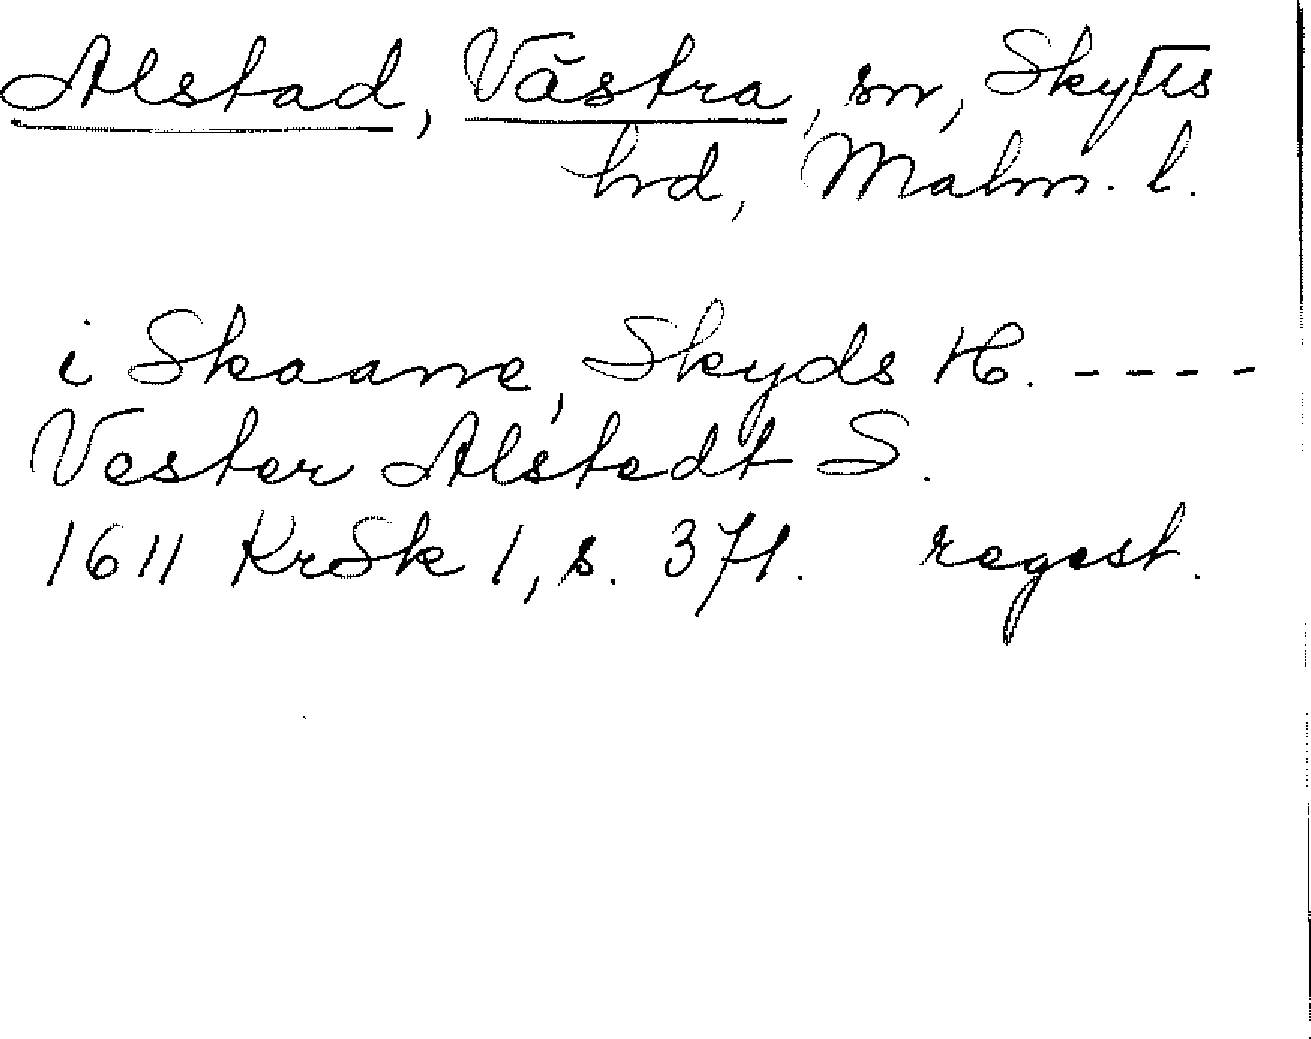 Alstad, Västra, sn, Skytts
hd, Malm. l.
i Skaane, Skyds H. ----
Vester Alstedt S.
1611 KrSk 1, s. 371. regest.